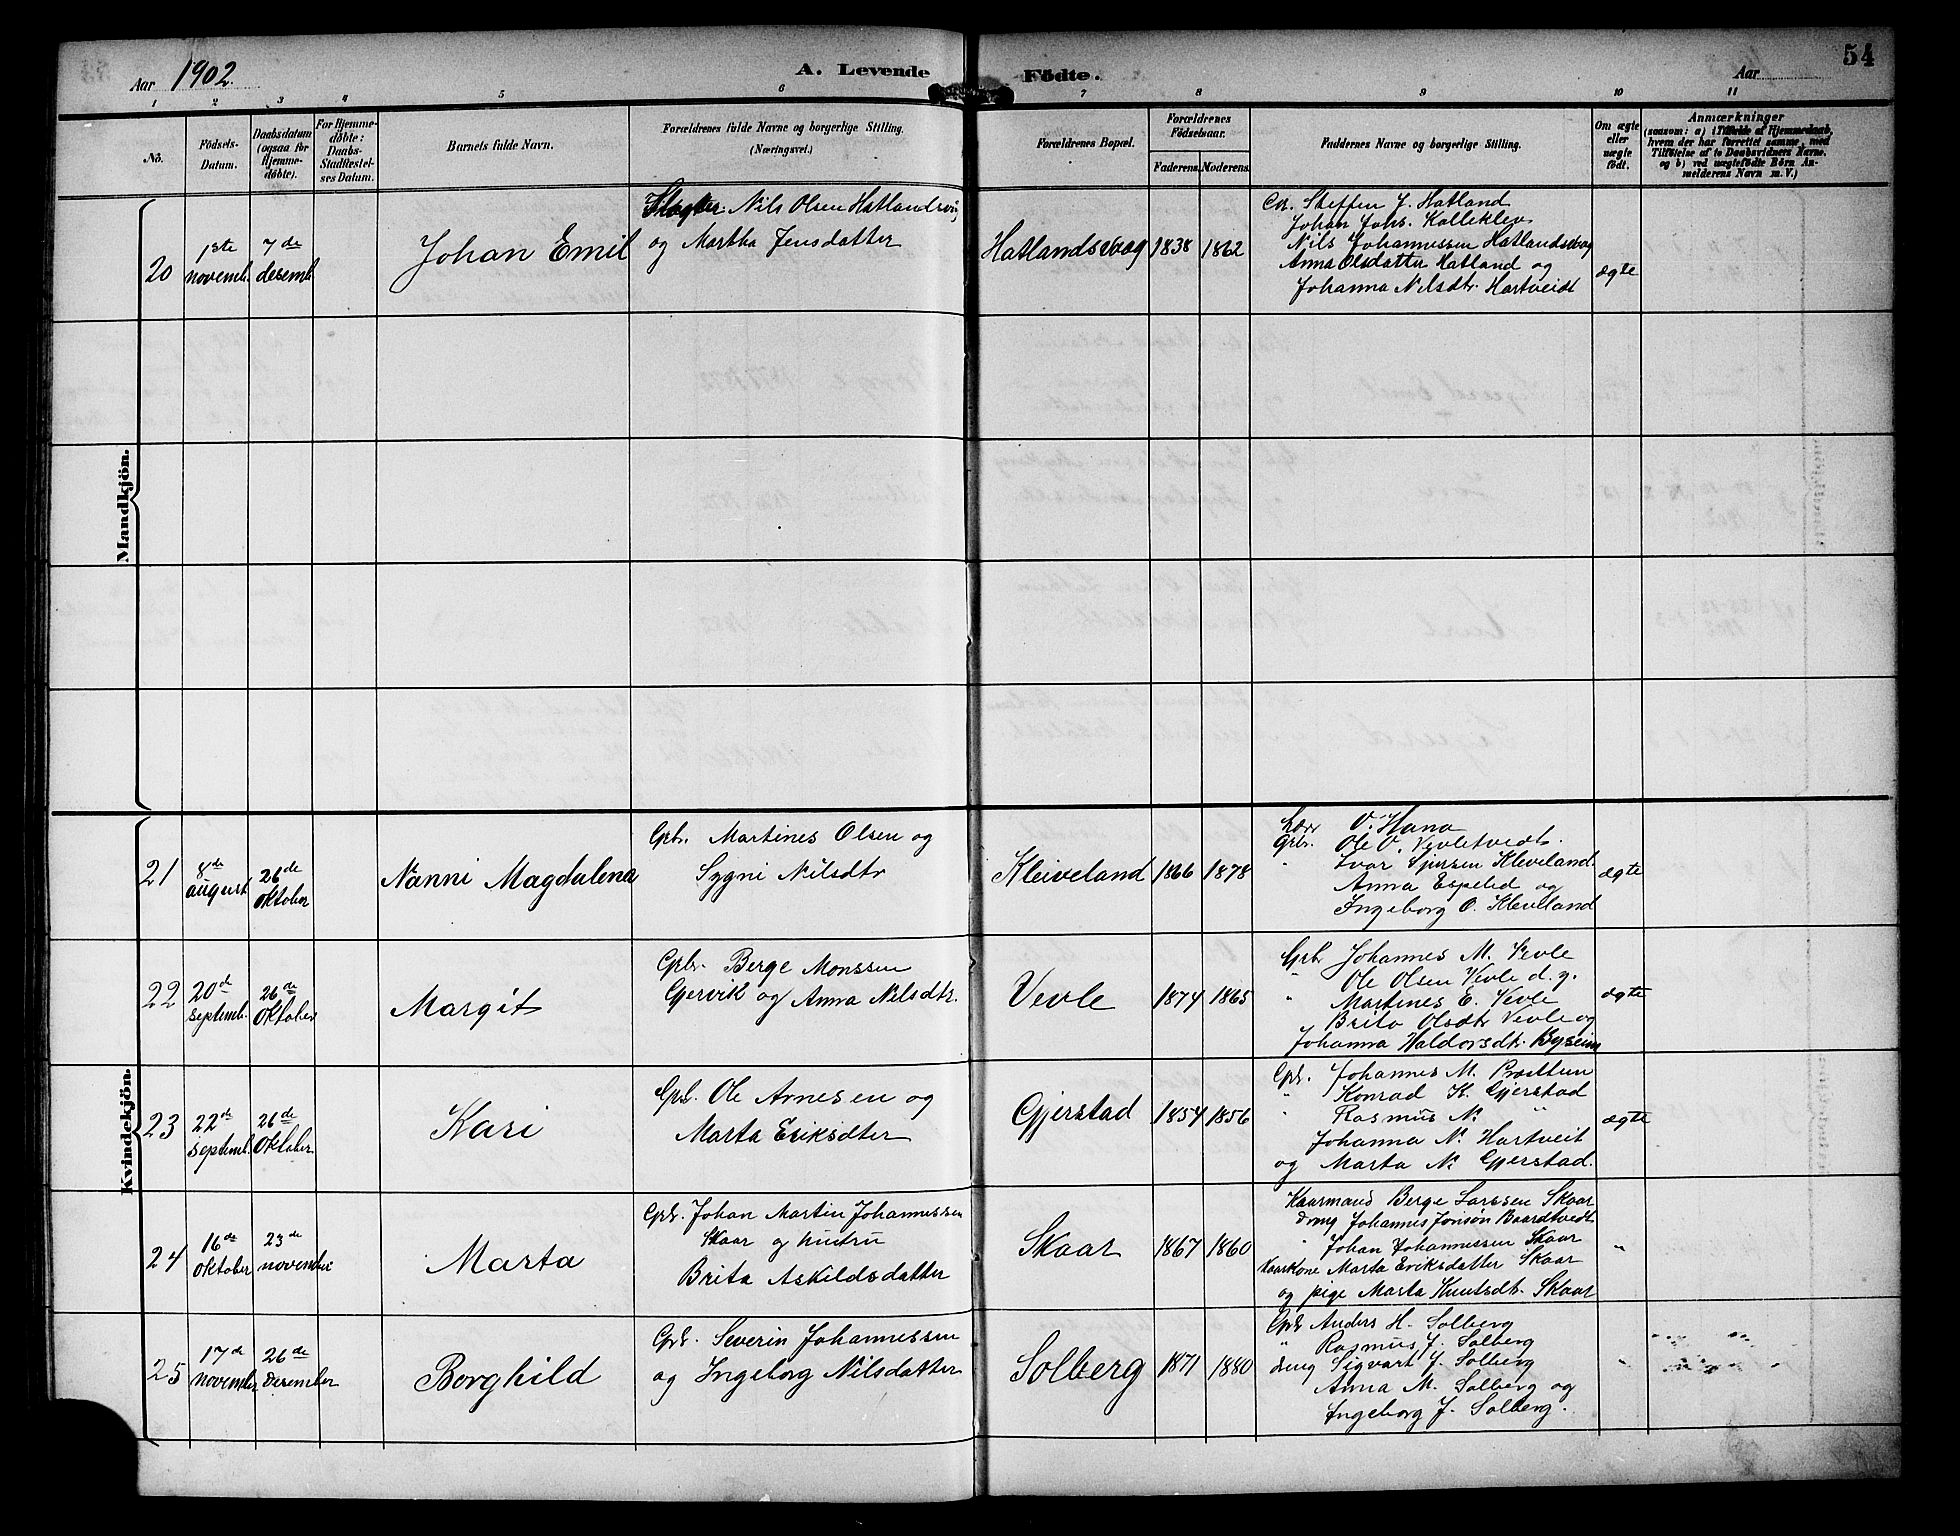 Aar 1902.
A. Levende Födte.
Aar
54
1 2 3 4 5 6 7 8 9 10 11
No.
Födsels-Datum.
Daabsdatum (ogsaa for Hjemme-döbte).
For Hjemme-döbte: Daabs-Stadfæstel-ses Datum.
Barnets fulde Navn.
Forældrenes fulde Navne og borgerlige Stilling.
(Næringsvei.)
Forældrenes Bopæl.
Forældrenes Födselsaar.
Faderens. Moderens.
Faddernes Navne og borgerlige Stilling.
Om ægte eller uægte födt.
Anmærkninger
(saasom: a) i Tilfælde af Hjemmedaab, hvem der har forrettet samme, med Tilföielse af to Daabsvidners Navne, og b) ved uægtefödte Börn An-melderens Navn m. V.)
Mandkjön.
20
1ste novemb.
7de desemb.
Johan Emil
Nils Olsen Hatlandsvåg
og Martha Jensdatter
Hatlandsvaag
1838 1862
Steffen J. Hatland
Johan Johs. Kalleklev
Nils Johannessen Hatlandsvaag
Anna Olsdatter Hatland og
Johanna Nilsdtr. Hartveidt
ægte
Kvindekjön.
21
8de august
26de oktober
Nanni Magdalena
Gbr. Martines Olsen og
Sygni Nilsdtr
Kleiveland
1866 1878
Lær O. Hana
Gbr. Ole O. Vevletvedt.
" Ivar Kleveland
Anna Espelid og
Ingeborg O. Kleveland
ægte
22
20de septemb.
26de oktober
Margit
Gbr. Berge Monssen
Gjervik og Anna Nilsdtr.
Vevle
1874 1865
Gbr Johannes M. Vevle
" Ole Olsen Vevle d. y.
" Martines E. Vevle
Brita Olsdtr Vevle og
Johanna Haldorsdtr. Byseim
ægte
23
22de septemb.
26de oktober
Kari
Gbr. Ole Arnesen og
Marta Eriksdtter
Gjerstad
1854 1856
Gbr. Johannes M. Prosttun
" Konrad K. Gjerstad
" Rasmus N. "
Johanna N. Hartveit
og Marta N. Gjerstad.
ægte
24
16de oktober
23de november
Marta
Gbr. Johan Martin Johannessen
Skaar og hustru
Brita Askildsdatter
Skaar
1867 1860
Kaarmand Berge Larssen Skaar
dreng Johannes Jonsön Baardtvedt
" Johan Johannessen Skaar
Kaarkone Marta Eriksdatter Skaar
og pige Marta Knutsdtr. Skaar
"
25
17de november
26de desember
Borghild
Gbr. Severin Johannessen
og Ingeborg Nilsdatter
Solberg
1871 1880
Gbr Anders H. Solberg
" Rasmus J. Solberg
dreng Sigvart J. Solberg
Anna M. Solberg og
Ingeborg J. Solberg.
"